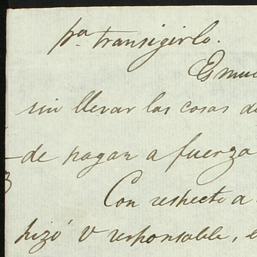 pa transigirlo.
Es muc
sin llevar las cosas de
de pagar a fuerza
Con respecto a
hizó V responsable, e